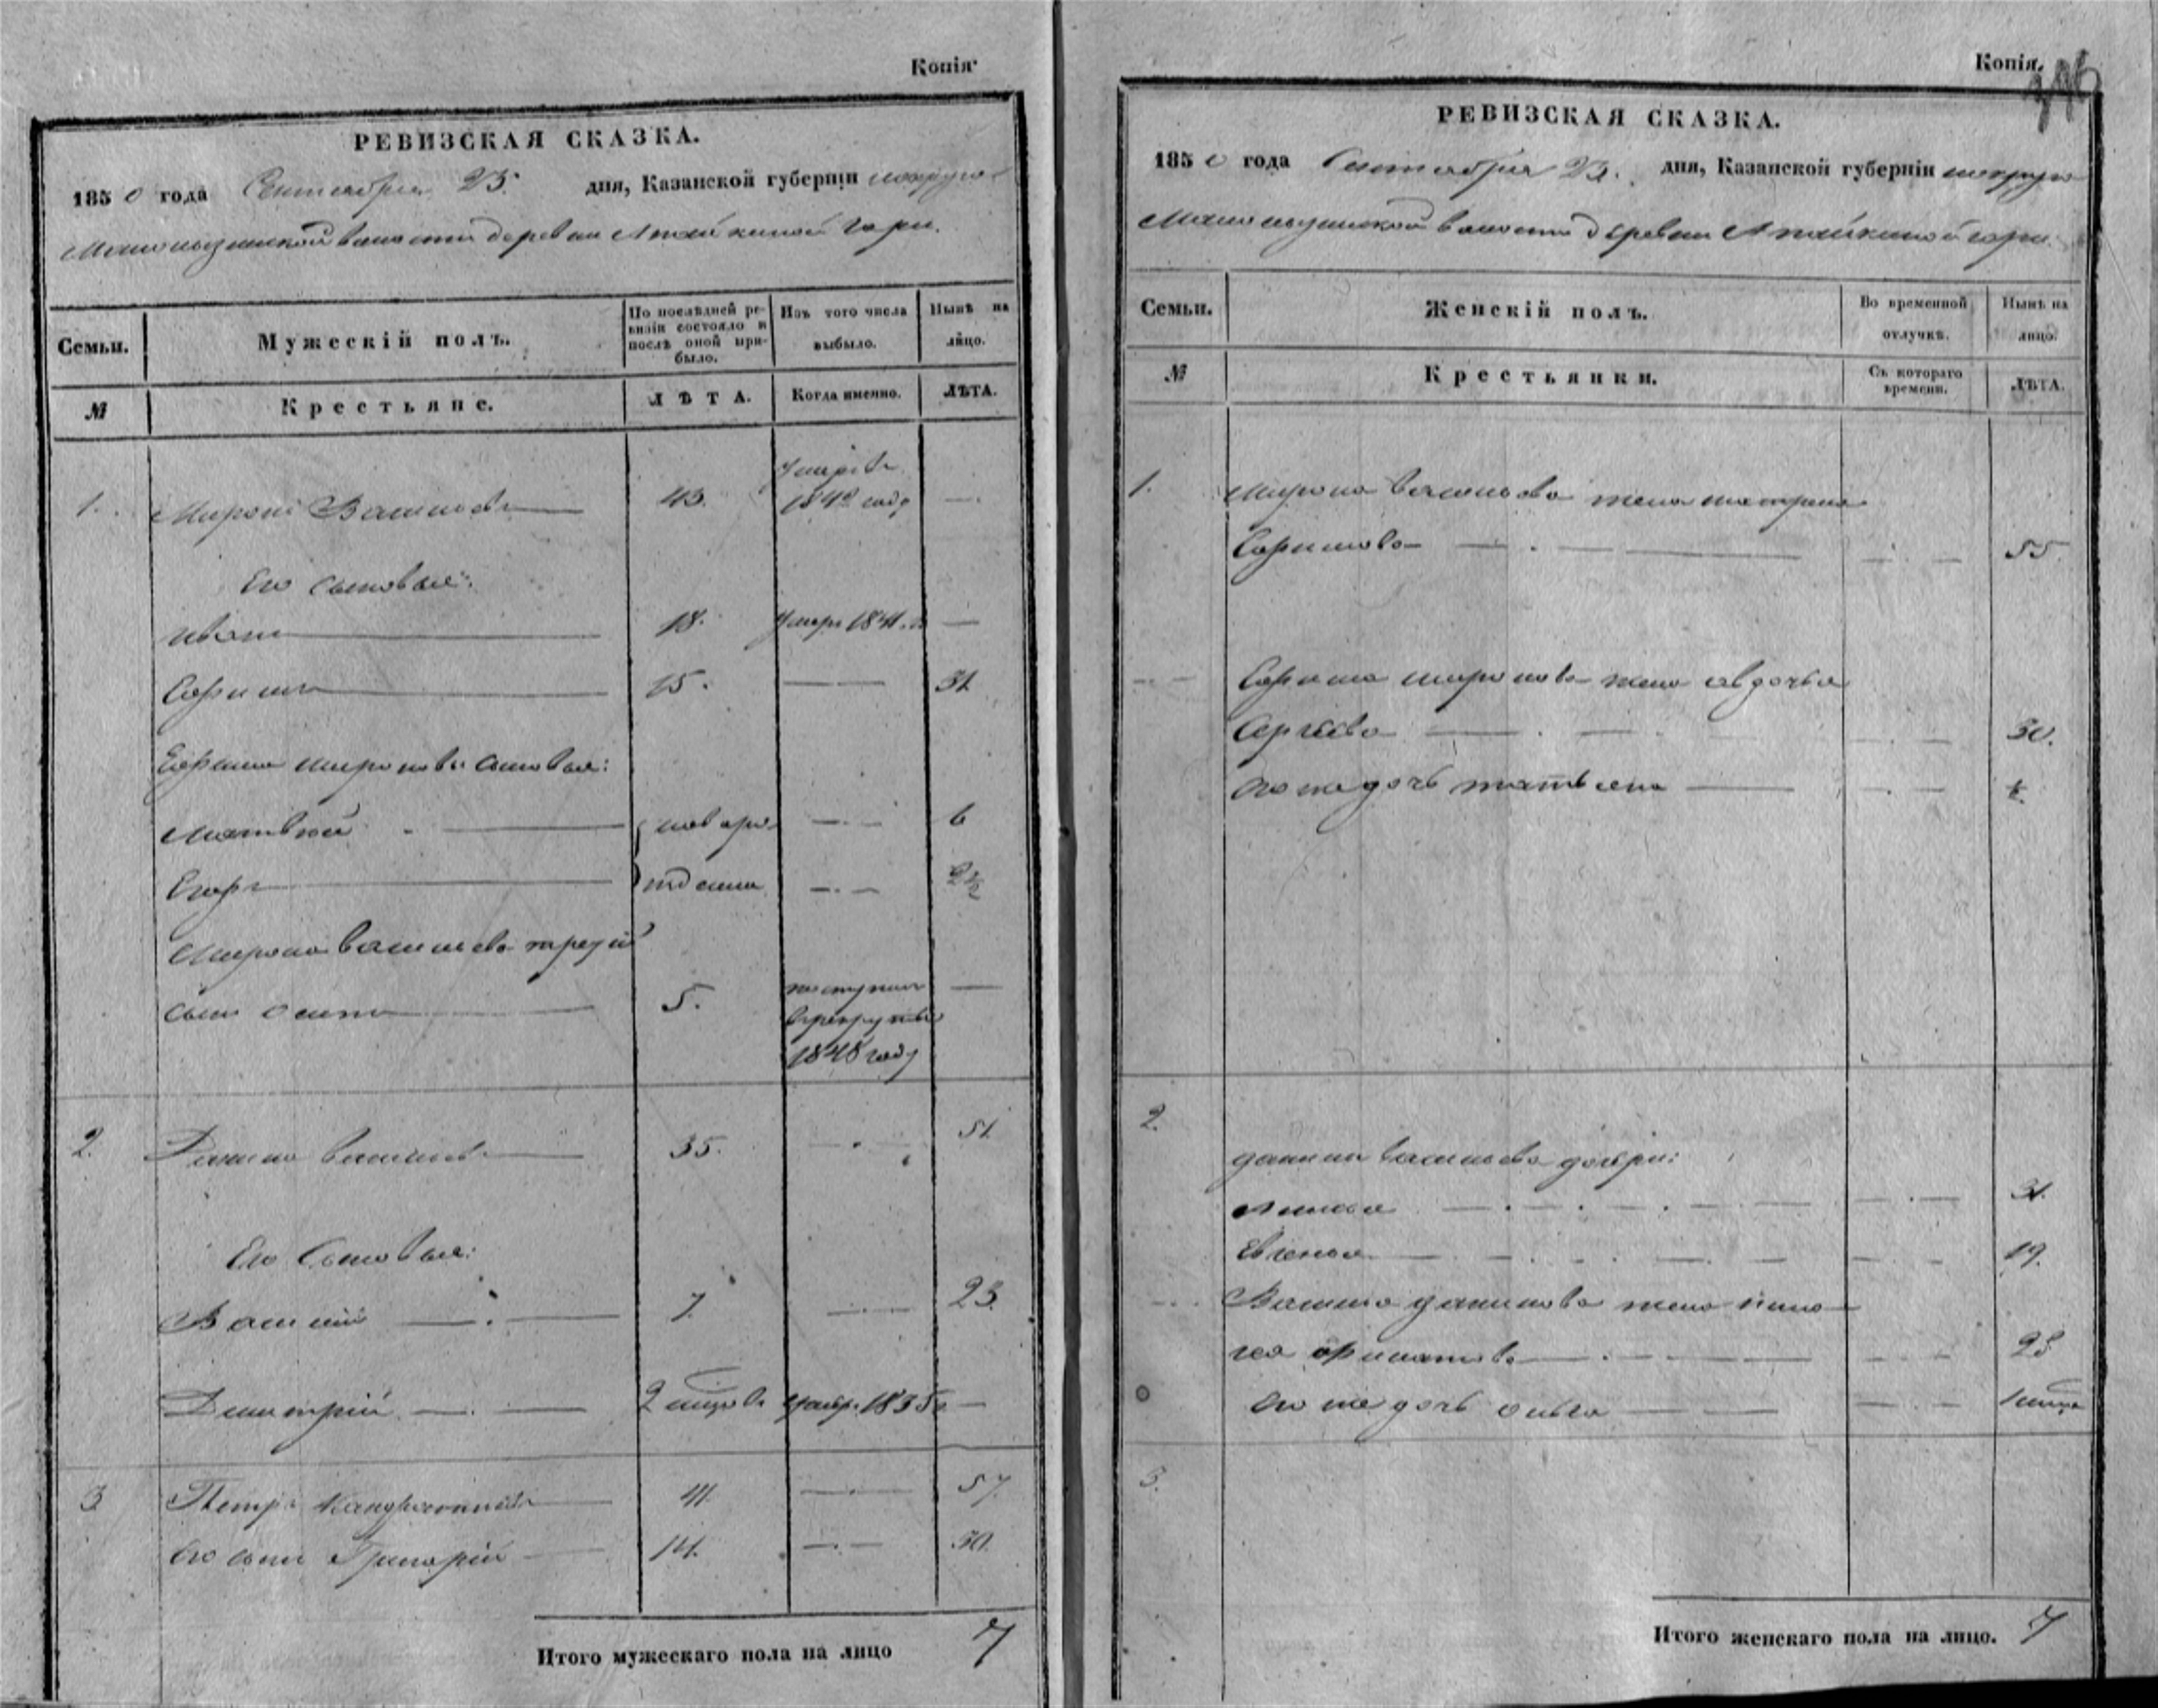 Копія
РЕВИЗСКАЯ СКАЗКА.
1850 года Сентября 23. дня, Казанской губерніи
волости деревни Атайкиной горы.
Семьи.
Мужескій полъ.
По послѣдней ревизіи состояло и послѣ оной прибыло.
Изъ того числа выбыло.
Нынѣ на лицо.
№
Крестьяне.
ЛѢТА.
Когда именно.
ЛѢТА.
1. Миронъ Васильевъ 43. умре въ
184 году —
Его сыновья:
Иванъ 18. умре 1841 —
Ефимъ 15. — 31
Ефима Миронова сыновья:
Матвей новоро- — 6
Егоръ жденны — 2½
Мирона Васильева третій
сынъ Осипъ 5. поступилъ —
въ рекруты
1848 году
2. Данило Васильевъ 35. — 51
Его сыновья:
Василій 7. — 23.
Дмитрій 2 умре 1835 —
3 Петръ 41. — 57.
Его сынъ Григорій 14. — 30.
Итого мужескаго пола на лицо 7
Копія.
РЕВИЗСКАЯ СКАЗКА.
1850 года Сентября 23. дня, Казанской губерніи
волости деревни Атайкиной горы.
Семьи.
Женскій полъ.
Во временной отлучкѣ.
Нынѣ на лицо.
№
Крестьянки.
Съ котораго времени.
ЛѢТА.
1. Мирона Васильева жена Матрена
Ефимова — 55
Ефима Миронова жена Авдотья
Сергѣева — 30.
Его же дочь Матвена —
2.
Данилы Васильева дочери:
— 31.
Евгенья — 19.
Василья Данилова жена
— 23
Его же дочь Ольга —
3.
Итого женскаго пола на лицо. 7